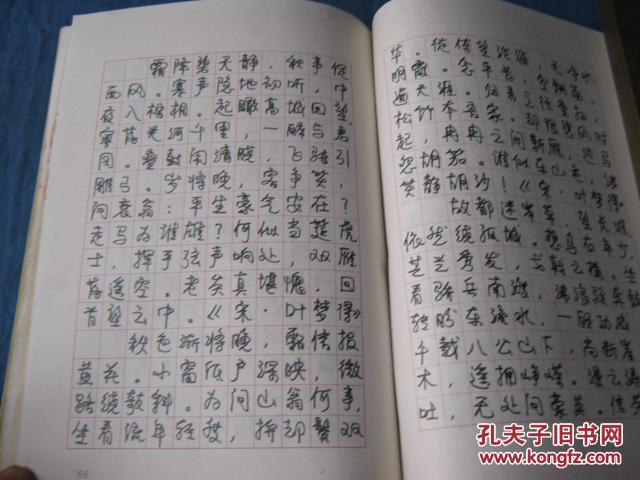 霜降碧天静，秋事促
西风。寒声隐地初听，中
夜入梧桐。起瞰高城回望，
寥落关河千里，一醉与君
同。叠鼓闹清晓，飞骑引
雕弓。岁将晚，客争笑，
问衰翁：平生豪气安在？
走马为谁雄？何似当筵虎
士，挥手弦声响处，双雁
落遥空。老矣真堪愧，回
首望云中。《宋·叶梦得》
秋色渐将晚，霜信报
黄花。小窗低户深映，微
路绕欹斜。为问山翁何事，
坐看流年轻度，拚却鬓双
68
华。徙倚望沧海，天净水
明霞。念平昔，空飘荡，
遍天涯。归来三径重扫，
松竹本吾家。却恨悲风时
起，冉冉云间新雁，边马
怨胡笳。谁似东山老，
笑静胡沙！《宋·叶梦得
故都迷岸草，望长淮
依然绕孤城。想乌衣年少，
芝兰秀发，戈戟云横。坐
看骄兵南渡，沸浪骇奔
转盼东流水，一顾功成
千载八公山下，尚断崖
木，遥拥峥嵘。漫云涛
吐，无处问豪英。信劳
孔夫子旧书网
www.kongfz.com